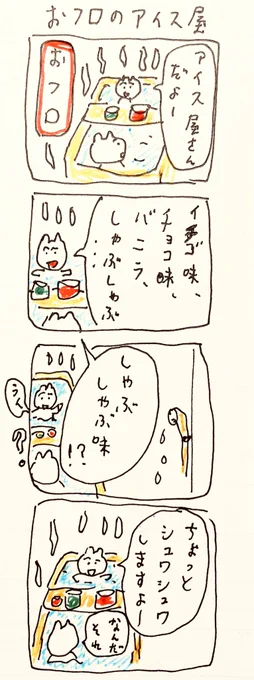 おフロのアイス屋
アイス屋さん
だよー
おフロ
イチゴ味、
チョコ味、
バニラ、
しゃぶしゃぶ
…
しゃぶ
しゃぶ味
!?
うん
?。
ちょっと
シュワシュワ
しますよー
なんだ
それ